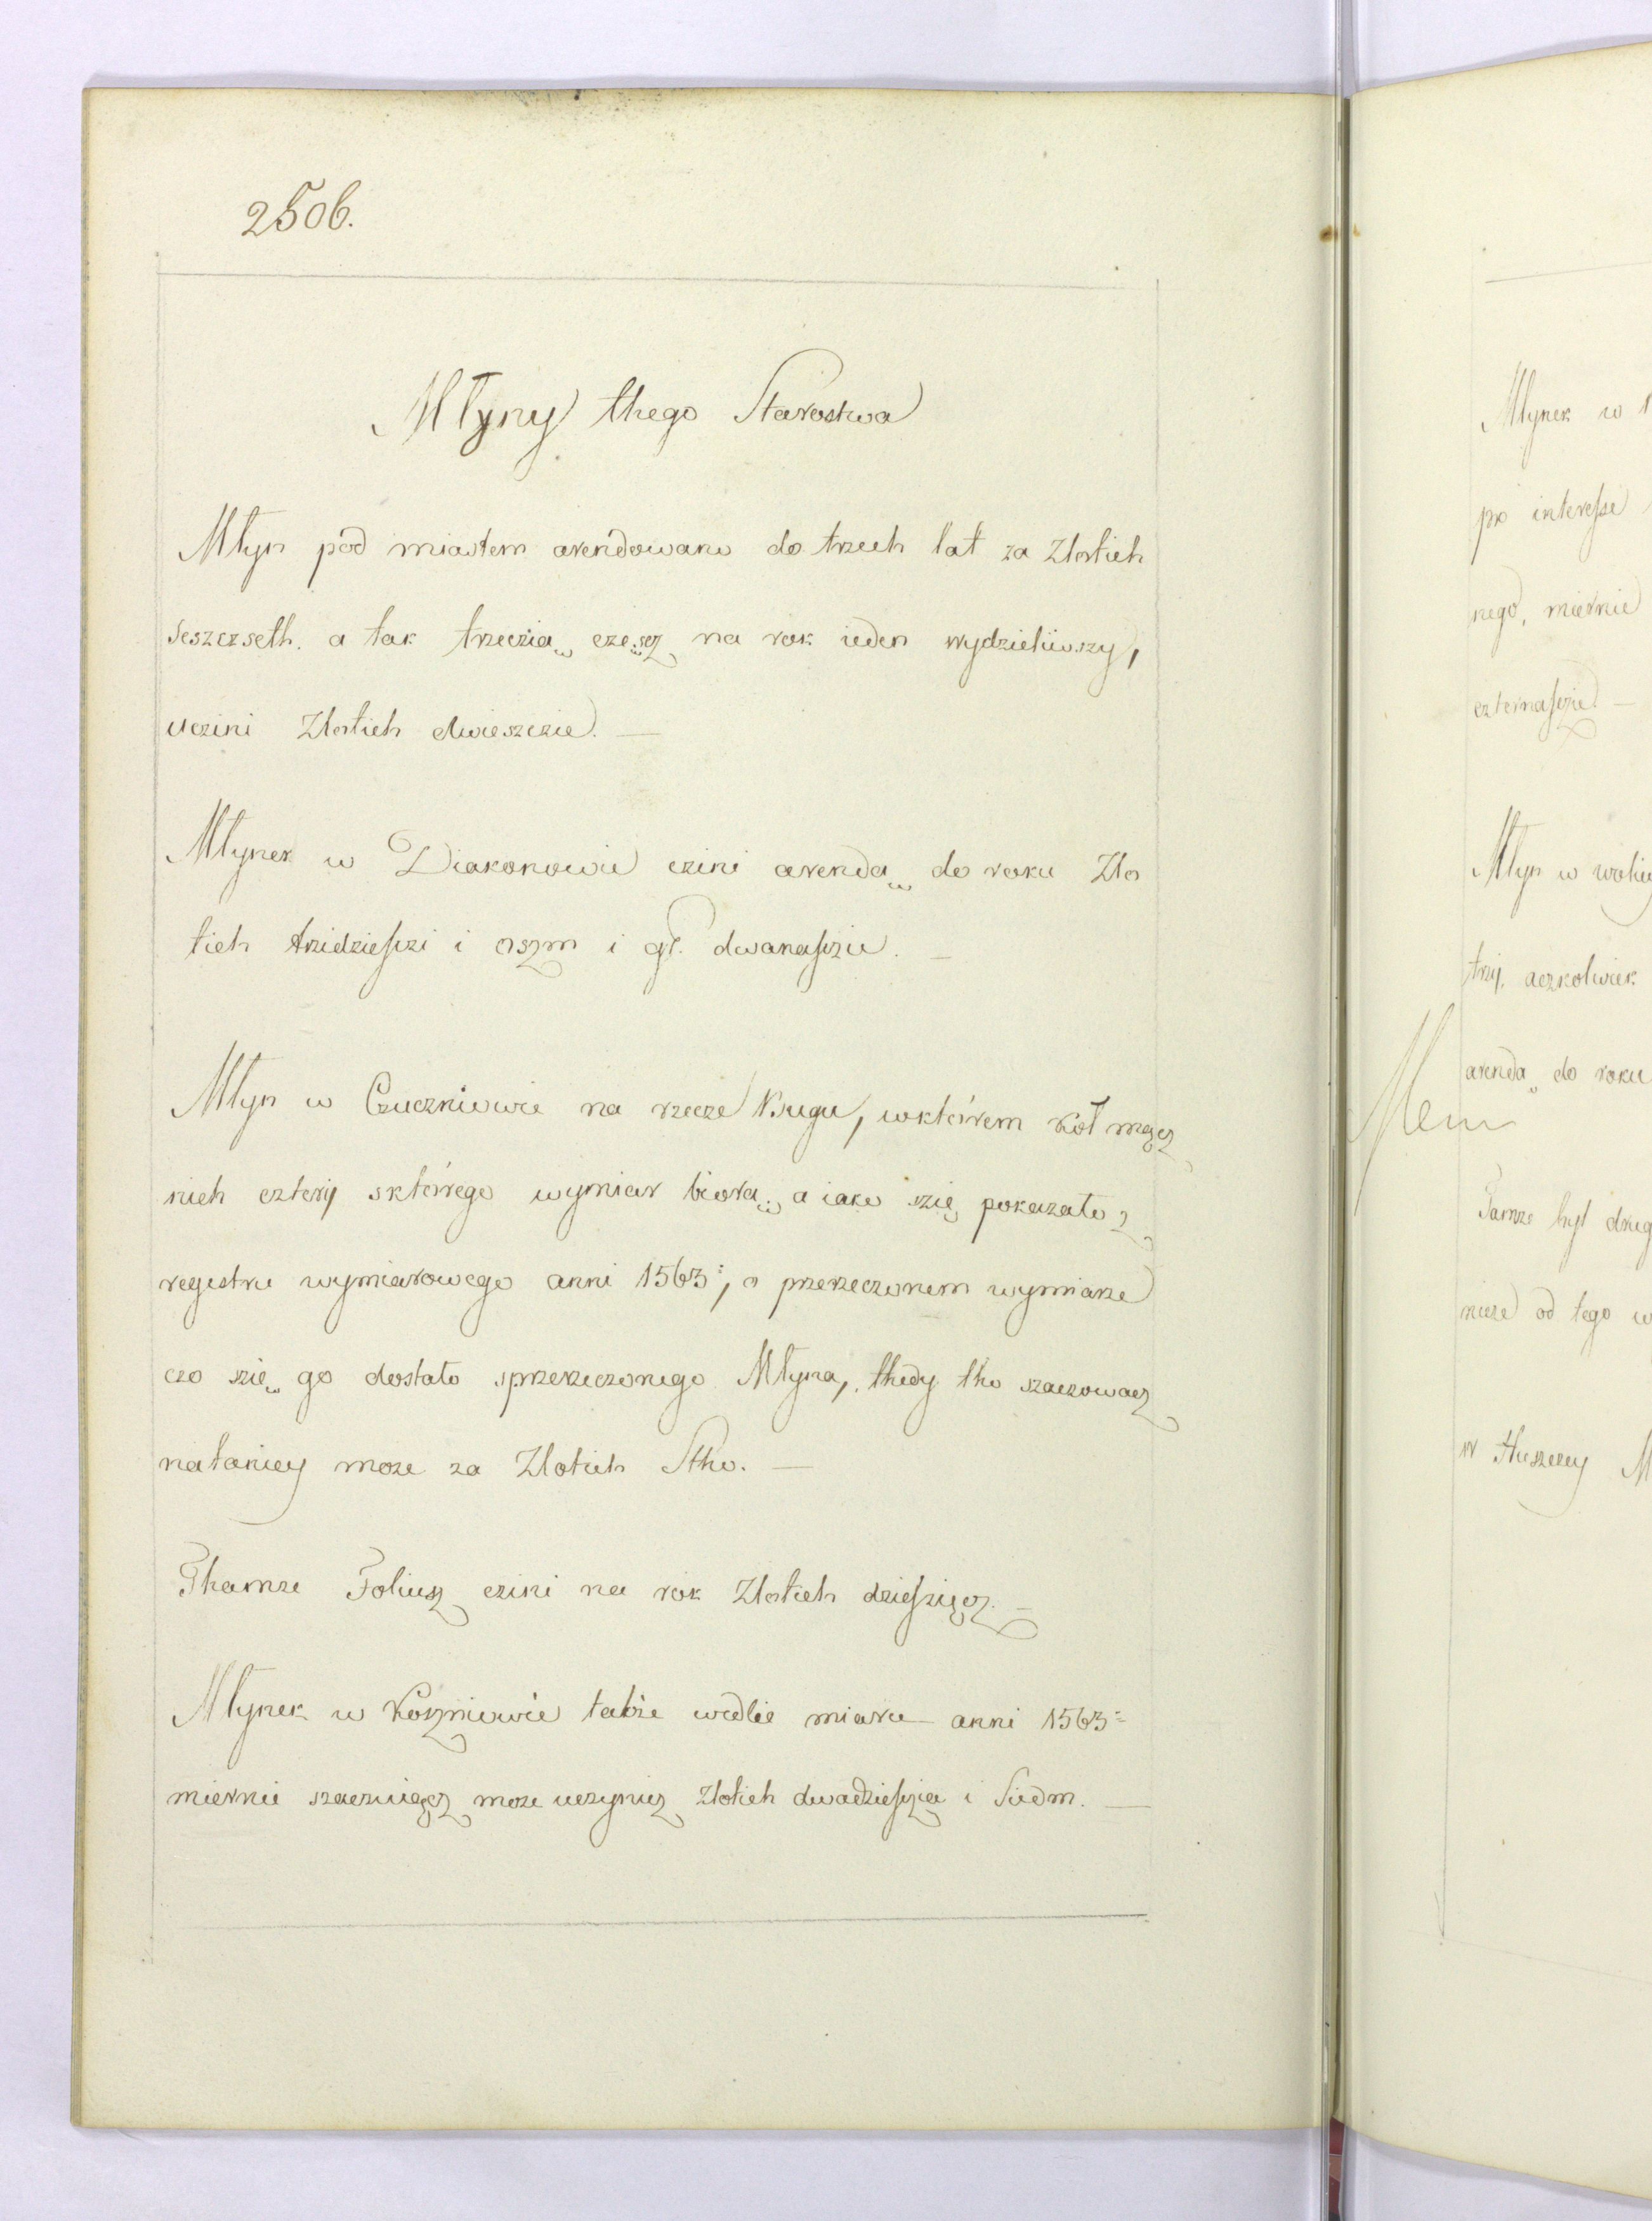 2506.
Młyny thego Starostwa
Młyn pod miastem arendowano do trzech lat za Zlotich
seszczseth. a tak trzeczią częscz na rok ieden wydzieliwszy,
uczini Zlotich dwieszczie. —
Młynek w Diakonowie czini arendą do roku Zło
tich trzidzieſczi i oszm i gr. dwanaſczie. —
Młyn w Czuczniewie na rzecze Bugu, wktórem kół mącz
nich cztery sktórego wymiar biorą, a iako szię pokazało z
regestru wymiarowego anni 1563:, o przerzeczonem wymiarze
czo szię go dostało sprzerzeczonego Młyna, thedy tho szaczowacz
nataniey może za Zlotich Stho. —
Thamze Foliusz czini na rok Zlotich dzieſzięcz. —
Młynek w Kozmiowie także wedlie miaru anni 1563:
miernie szaczuięcz może uczynicz Zlotich dwadzieſzcia i Siedm. —
Młynek w
pro intereſse
nego, miernie
czternaſczie —
Młyn w
trzy, aczkolwiek
arendą do roku
Mem
Tamze był drug
nicze od tego w
w tłuszczy M